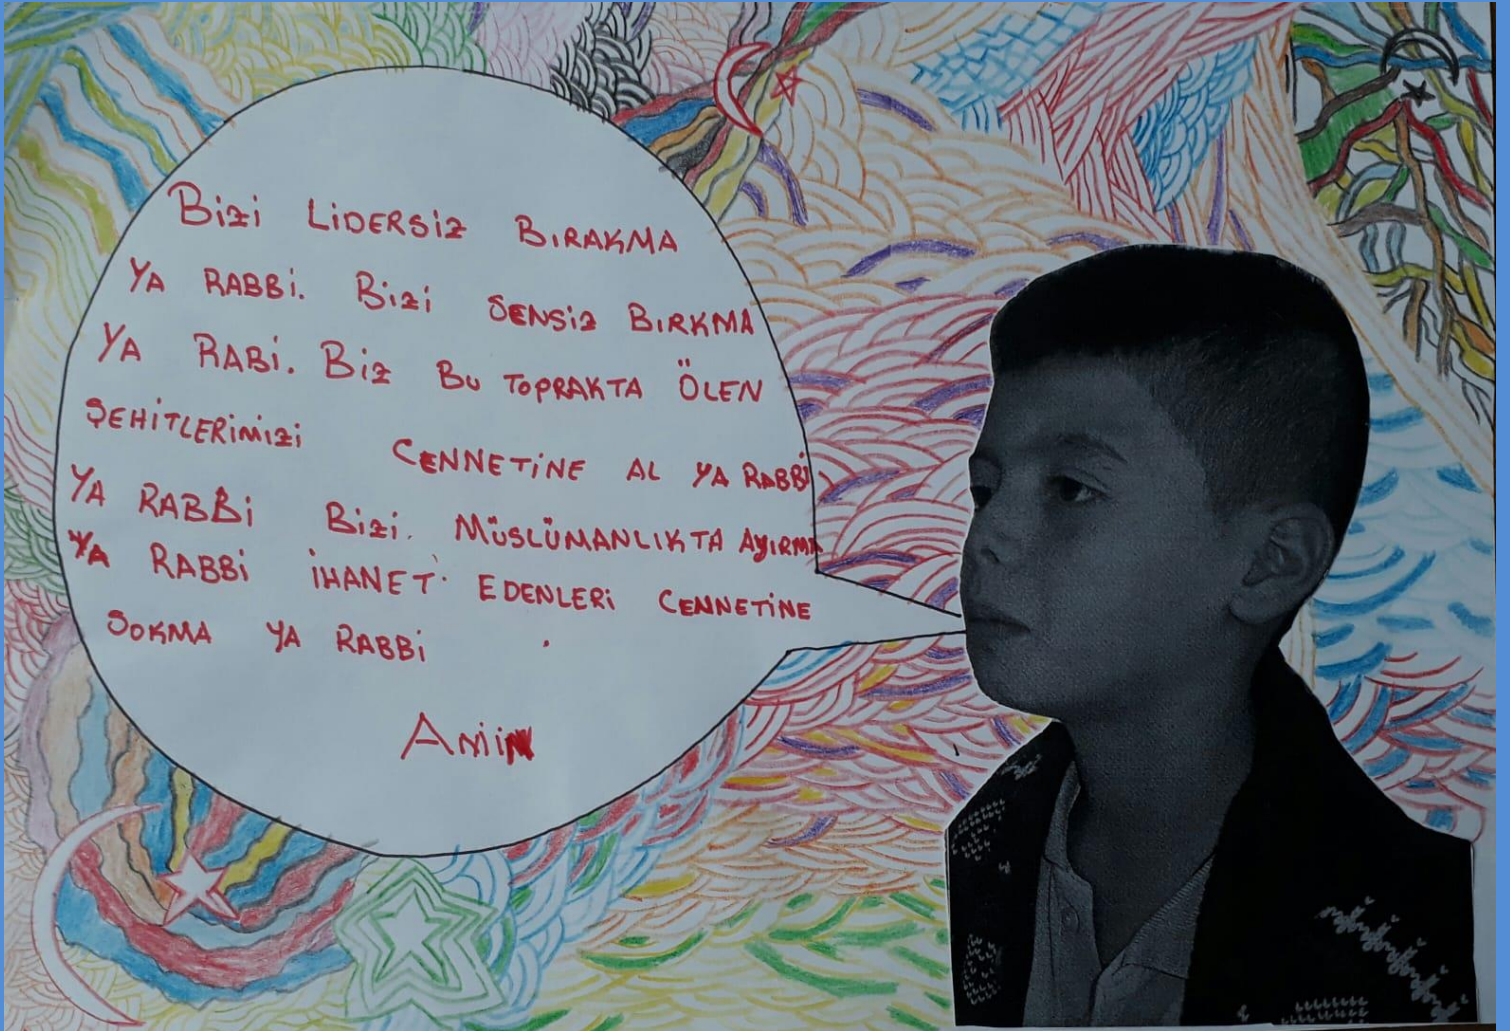 Bizi LİDERSİZ BIRAKMA
YA RABBİ. Bizi SENSİZ BIRKMA
YA RABİ. Biz BU TOPRAKTA ÖLEN
ŞEHİTLERİMİZİ CENNETİNE AL YA RABBİ
YA RABBİ Bizi. MÜSLÜMANLIKTA AYIRMA
YA RABBİ İHANET EDENLERİ CENNETİNE
SOKMA YA RABBİ .
AMİN